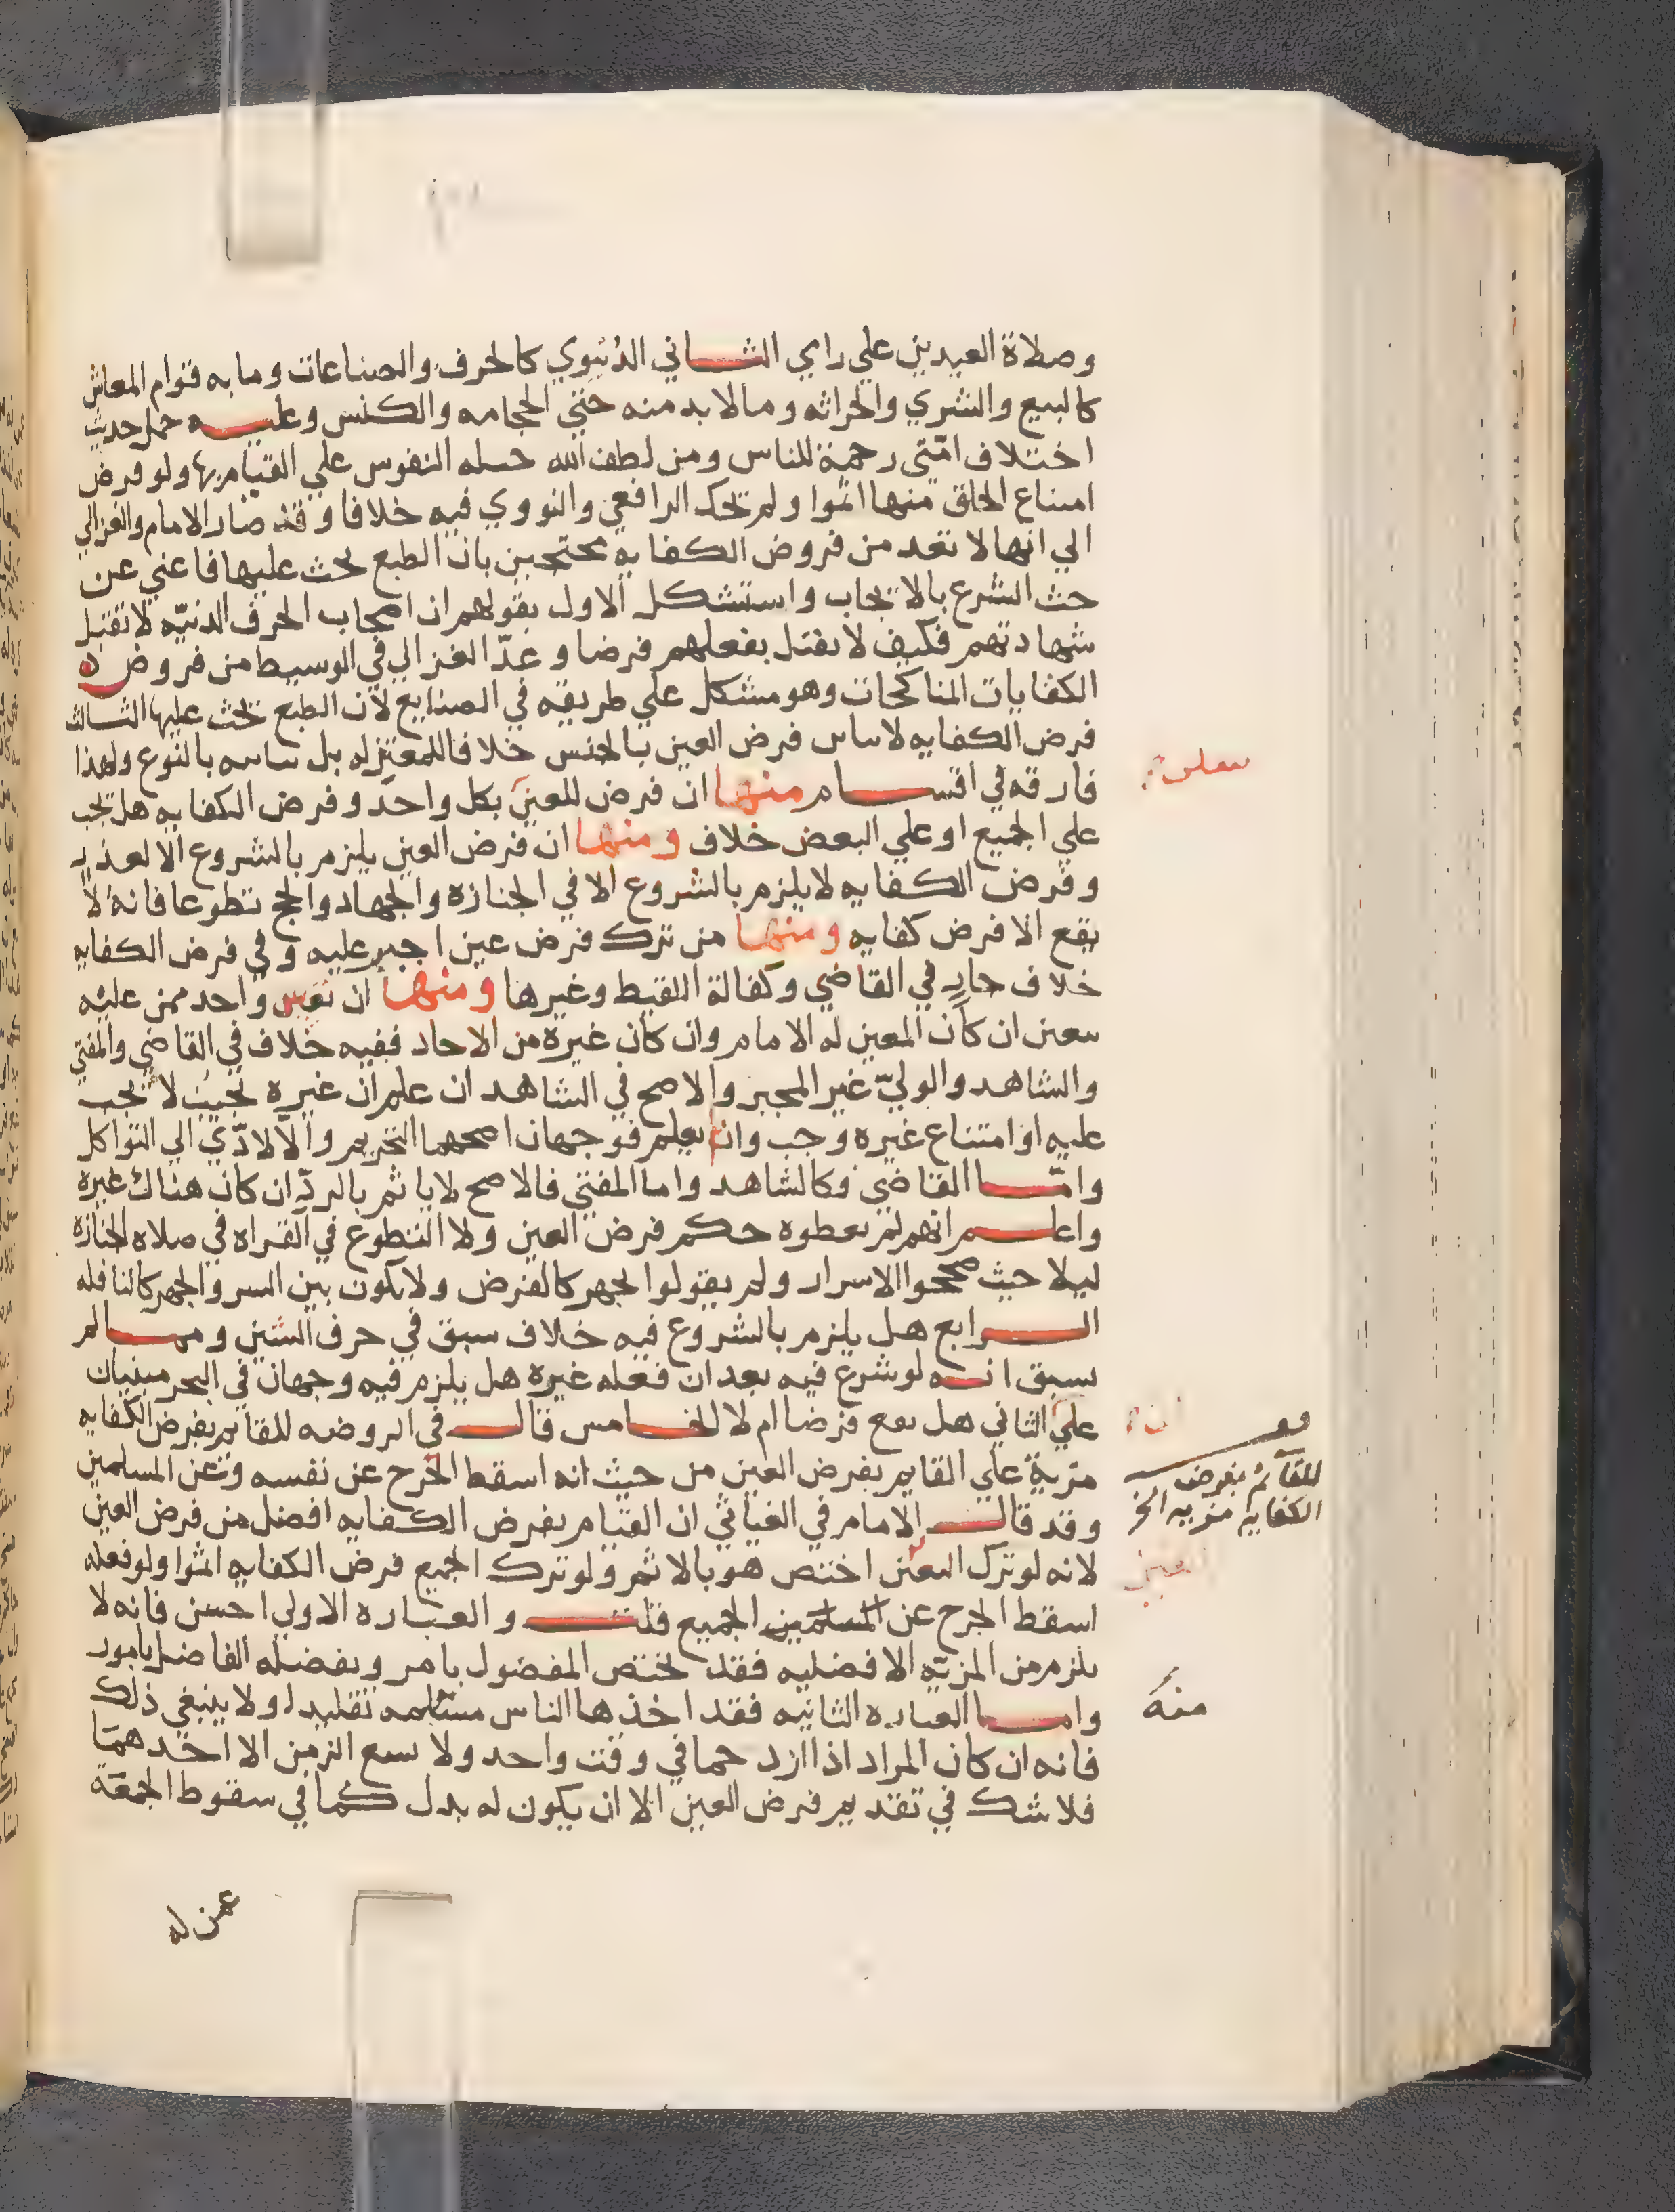 وصلاة العيدين علي راي الثـــاني الدنيوي كالحرف والصناعات وما به قوام المعاش
كالبيع والشري والحراثه ومالا بد منه حتي الحجامه والكنس وعليـــه حمل حديث
اختلاف امتي رحمة للناس ومن لطف الله حبله النفوس علي القيام بها ولو فرض
امتناع الخلق منها اثموا ولم تحك الرافعي والنووي فيه خلافا وقد صار الامام والغزالي
الي انها لا تعد من فروض الكفايه محتجين بان الطبع يحث عليها فاغني عن
حث الشرع بالايجاب واستشكل الاول بقولهم ان اصحاب الحرف الدنيه لا تقبل
شهادتهم فكيف لا يقبل بفعلهم فرضا وعدّ الغزالي في الوسيط من فروض
الكفايات المناكحات وهو مشكل علي طريقه في الصنايع لان الطبع يحث عليها الثالث
فرض الكفايه لا يباين فرض العين بالجنس خلافا للمعتزله بل يباينه بالنوع ولهذا
فارقه في اقســـام منها ان فرض العين بكل واحد وفرض الكفايه هل يجب
علي الجميع او علي البعض خلاف ومنها ان فرض العين يلزم بالشروع الا لعذر
وفرض الكفايه لا يلزم بالشروع الا في الجنازه والجهاد والحج تطوعا فانه لا
يقع الا فرض كفايه ومنها من ترك فرض عين اجبر عليه وفي فرض الكفايه
خلاف جار في القاضي وكفالة اللقيط وغيرها ومنها ان تعين واحد ممن عليه
يتعين ان كان المعين له الامام وان كان غيره من الاحاد ففيه خلاف في القاضي والمفتي
والشاهد والوليّ غير المجبر والاصح في الشاهد ان علم ان غيره يجيب لا يجب
عليه او امتناع غيره وجب وان لم يعلم فوجهان اصحهما التحريم والا لادّي الي التواكل
وامّـــا القاضي فكالشاهد واما المفتي فالاصح لا ياثم بالرد ان كان هناك غيره
واعلـــم انهم لم يعطوه حكم فرض العين ولا التطوع في القراه في صلاه الجنازه
ليلا حيث صححوا الاسرار ولم يقولوا يجهر كالفرض ولا يكون بين السر والجهر كالنافله
الـــرابع هل يلزم بالشروع فيه خلاف سبق في حرف الشين وممـــا لم
يسبق انـــه لو شرع فيه بعد ان فعله غيره هل يلزم فيه وجهان في البحر مبنيان
علي الثاني هل يقع فرضا ام لا الخـــامس قالـــ في الروضه للقايم بفرض الكفايه
مزية علي القايم بفرض العين من حيث انه اسقط الحرج عن نفسه وعن المسلمين
وقد قالـــ الامام في الغياثي ان القيام بفرض الكفايه افضل من فرض العين
لانه لو ترك المعين اختص هو بالاثم ولو ترك الجميع فرض الكفايه اثموا ولو فعله
اسقط الحرج عن المسلمين الجميع قلتـــ والعباره الاولي احسن فانه لا
يلزم من المزيّه الافضليه فقد يختص المفضول بامر ويفضله الفاضل بامور
وامـــا العباره الثانيه فقد اخذها الناس مسلمه تقليدا ولا ينبغي ذلك
فانه ان كان المراد اذا ازدحما في وقت واحد ولا يسع الزمن الا احدهما
فلا شك في تقديم فرض العين الا ان يكون له بدل كما في سقوط الجمعة
للقائم بفرض
الكفايه مزيه الخ
منه
عمن له